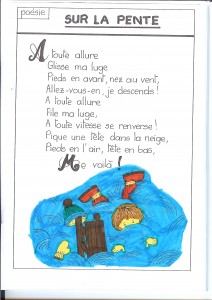 poésie
SUR LA PENTE
A toute allure
Glisse ma luge
Pieds en avant, nez au vent,
Allez-vous-en, je descends !
A toute allure
File ma luge,
A toute vitesse se renverse !
Pique une tête dans la neige,
Pieds en l'air, tête en bas,
Me voilà !